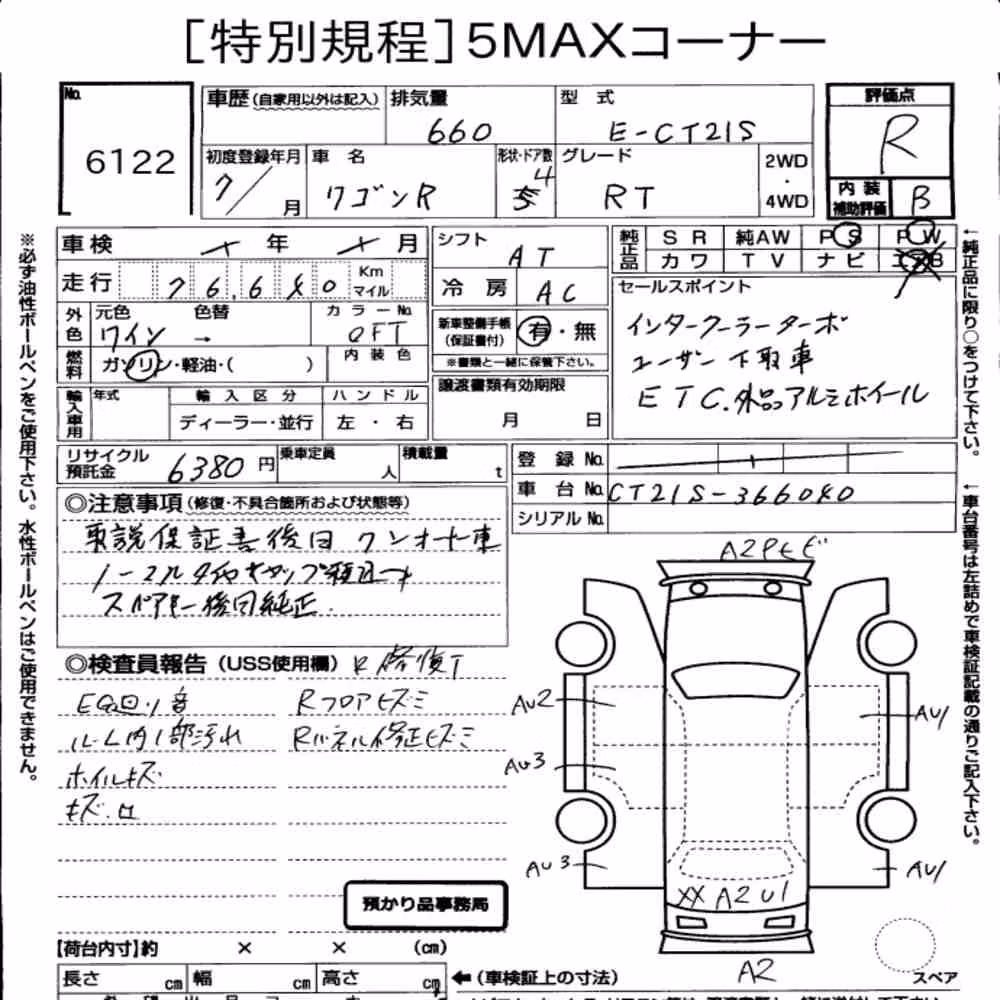 [特別規程]5MAXコーナー
No.
6122
車歴(自家用以外は記入)
排気量
660
型 式
E-CT21S
評価点
R
初度登録年月
7/ 月
車 名
ワゴンR
形状・ドア数
4
5
グレード
RT
2WD
・
4WD
内装
補助評価
B
車検 年 月
シフト
AT
純正品
SR 純AW PS PW
カワ TV ナビ エアB
走行 76,640 Km
マイル
冷房 AC
セールスポイント
インタークーラーターボ
ユーザー下取車
ETC.外品アルミホイール
外色
元色 色替
ワイン →
カラーNo.
0FT
新車整備手帳
(保証書付)
有・無
※書類と一緒に保管下さい。
燃料
ガソリン・軽油・( )
内装色
譲渡書類有効期限
月 日
輸入車用
年式
輸入区分
ディーラー・並行
ハンドル
左・右
リサイクル
預託金
6380円
乗車定員
人
積載量
t
登録No.
車台No. CT21S-366040
シリアルNo.
◎注意事項(修復・不具合箇所および状態等)
取説保証書後日 ワンオーナー車
ノーマルタイヤキャップ積込
スペアキー後日純正.
◎検査員報告(USS使用欄) R修復T
EG回り音
ルーム内1部汚れ
ホイルキズ
キズ.凹
Rフロアヒズミ
Rパネル修正ヒズミ
預かり品事務局
A2PヒビAU2
AU3
AU3
AU1
AU1
XX A2 U1
A2
スペア
【荷台内寸】約 × × (cm)
長さ cm 幅 cm 高さ cm ←(車検証上の寸法)
※必ず油性ボールペンをご使用下さい。水性ボールペンはご使用できません。
←純正品に限り○をつけて下さい。
←車台番号は左詰めで車検証記載の通りご記入下さい。